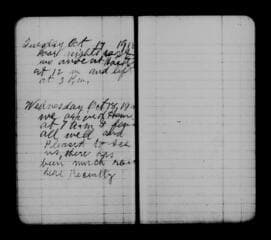 Tuesday Oct 17 191
at 12 m and left
at 3 P.m.
Wednesday Oct 18 19
we arrived Home
at 7 a m &
all well and
Pleased to see
us, there has
been much rain
here Recently